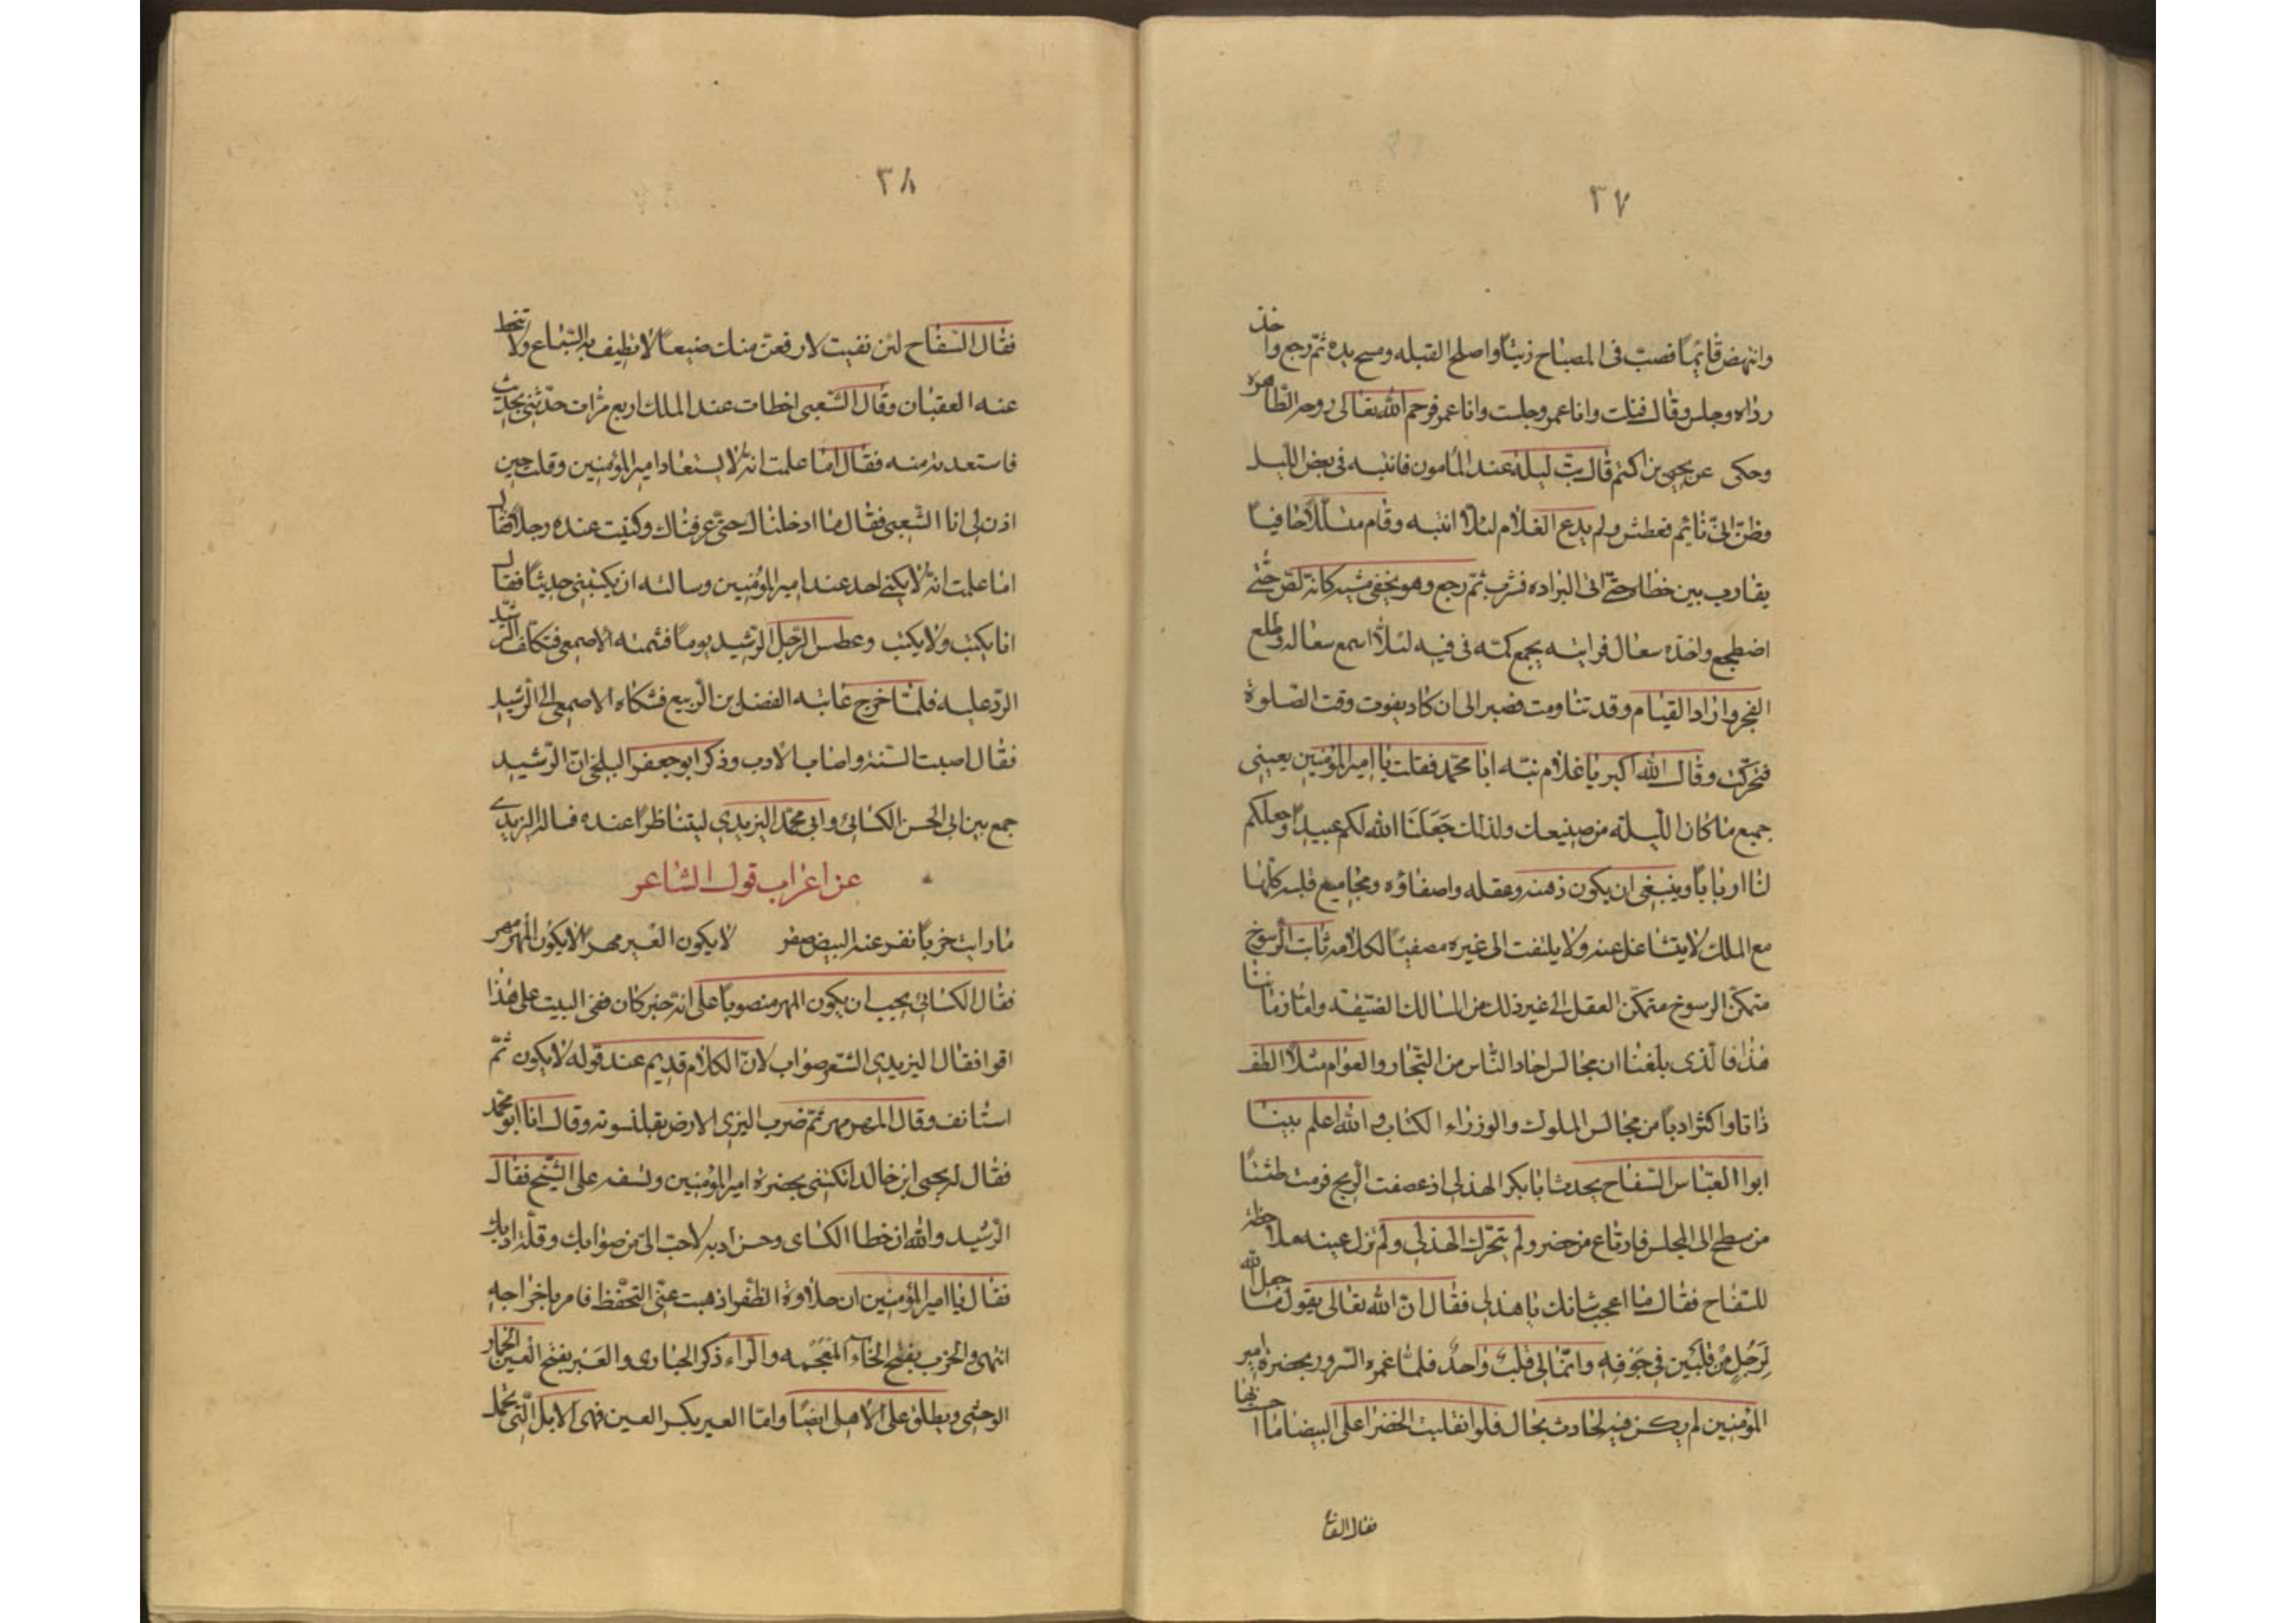 ٣٧
وانتهض قائمًا فصبّ فى المصباح زيتًا واصلح الفتيله ومسح يده ثم رجع واخذ
رداه وجلس وقال قمت وانا عمر وجلست وانا عمر فرحم الله تعالى روحه الطاهره
وحكى عن يحيى بن اكثم قال بتّ ليلة عند المأمون فانتبه فى بعض الليل
وظنّ انّى نائم فعطش ولم يدع الغلام لئلا انتبه وقام متسللًا خافيًا
يقارب بين خطاه حتى اتى البراده فشرب ثم رجع وهو يخفى مشيه كانه لصّ حتى
اضطجع واخذه سعال فرايته يجمع كمّه فى فيه لئلّا اسمع سعاله وطلع
الفجر واراد القيام وقد تناومت فصبر الى ان كاد يفوت وقت الصلوة
فتحرّكت وقال الله اكبر يا غلام نبّه ابا محمّد فقلت يا امير المؤمنين بعينى
جميع ما كان الليلة من صنيعك ولذلك جَعَلَنَا الله لكم عبيدًا وجعلكم
لنا اربابًا وينبغى ان يكون ذهنه وعقله واصغاؤه ومجاميع قلبه كلها
مع الملك لا يتشاغل عنه ولا يلتفت الى غيره مصغيًا لكلامه ثابت الرسوخ
متمكّن الرسوخ متمكّن العقل الى غير ذلك من المسالك وامّا زماننا
هذا فالّذى بلغنا ان مجالس احاد النّاس من التّجار والعوام مثلًا الطف
ذاتا واكثر ادبًا من مجالس الملوك والوزراء الكتاب والله اعلم بينا
ابوا العبّاس السّفاح يحدث ابا بكر الهذلى اذ عصفت الريح فرمت طشتًا
من سطح الى المجلس فارتاع من حضر ولم يتحرّك الهذلى ولم تزل عينه ملاحظة
للسّفاح فقال ما اعجب شانك يا هذلى فقال انّ الله تعالى يقول ما جعل الله
لِرَجُلٍ مِنْ قَلْبَيْنِ فِي جَوْفِهِ وانّما لى قلبٌ واحدٌ فلمّا غمره السّرور بحضرة امير
المؤمنين لم يكن فيه لحادث مجال فلو انقلبت الخضرا على البيضا ما احسست بها
فقال السفاح
٣٨
فقال السّفاح لئن بقيت لارفعنّ منك ضبعًا لا تطيف به السّباع ولا تنحط
عنه العقبان وقال الشّعبى اخطات عند الملك اربع مرّات حدّثنى بحديث
فاستعدته منه فقال امّا علمت انّه لا يستعاد امير المؤمنين وقلت حين
اذن لى انا الشّعبى فقال ما ادخلناك حتى عرفناك وكنيت عنده رجلًا فقال
اما علمت انّه لا يكنى احد عند امير المؤمنين وسالته ان يكتبنى حديثًا فقال
انا نكتب ولا يكتب وعطس الرّجل الرّشيد يومًا فشمته الاصمعى فتكلّف الرّشيد
الرّد عليه فلمّا خرج عاتبه الفضل بن الربيع فشكاه الاصمعى الى الرّشيد
فقال اصبت السّنّة واصاب الادب وذكر ابو جعفر البلخى انّ الرّشيد
جمع بين ابى الحسن الكسائى وابى محمّد اليزيدى ليتناظرا عنده فساله اليزيدى
عن اعراب قول الشاعر
ما رايت خربًا نفر عنه البيض صقر لا يكون العير مهرًا لا يكون المهر مهر
فقال الكسائى يجب ان يكون المهر منصوبًا على انه خبر كان ففى البيت على هذا
اقوا فقال اليزيدى الشّعر صواب لانّ الكلام قديم عند قوله لا يكون ثمّ
استانف وقال المهر مهر ثم ضرب اليزيدى الارض بقلنسوته وقال انا ابو محمّد
فقال له يحيى ابن خالد اتكتنى بحضرة امير المؤمنين وتسفه على الشيخ فقال
الرّشيد والله ان خطا الكساى وحسن ادبه لاحبّ الىّ من صوابك وقلّة ادبك
فقال يا امير المؤمنين ان حلاوة الظّفر اذهبت عنّى التحفّظ فامر باخراجه
انتهى والخرب بفتح الخاء المعجمه والرّاء ذكر الحبارى والعَير بفتح العين الحمار
الوحشى ويطلق على الاهلى ايضًا وامّا العير بكسر العين فهى الابل الّتى تحمل